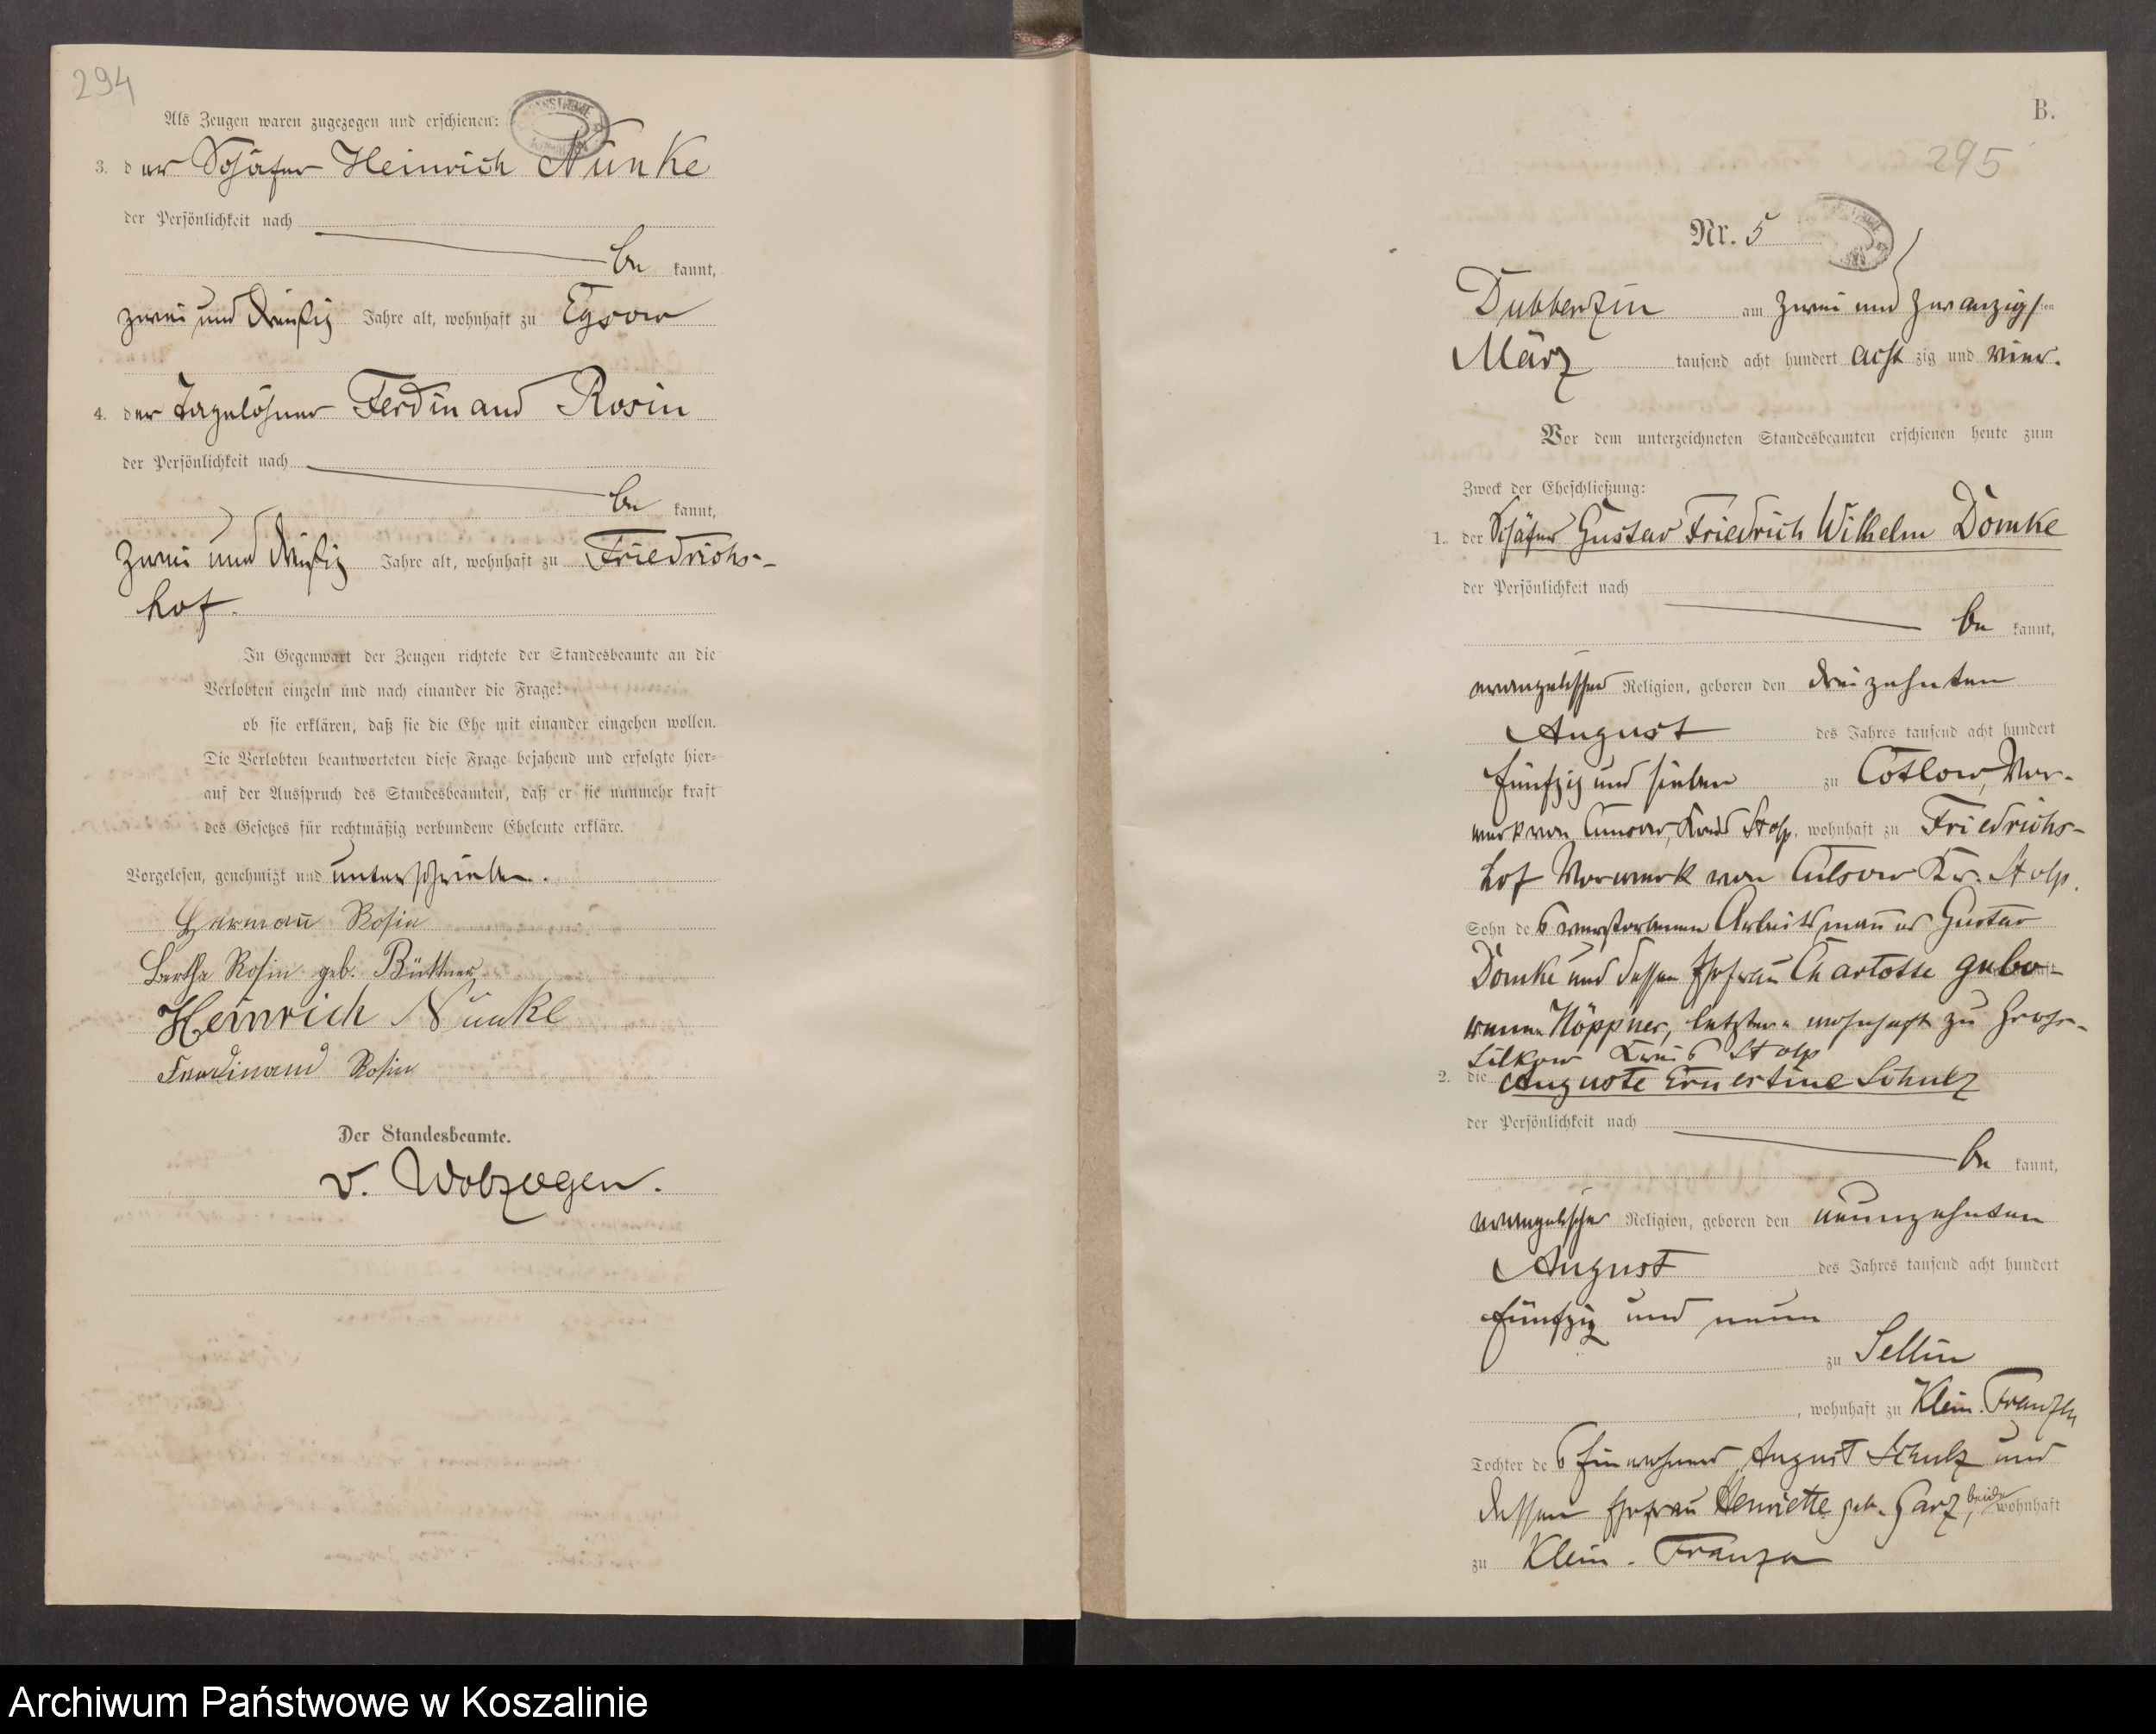 294
Als Zeugen waren zugezogen und erschienen:
3. der Schäfer Heinrich Nünke
der Persönlichkeit nach
be kannt,
zwei und dreißig Jahre alt, wohnhaft zu Egsow
4. der Tagelöhner Ferdinand Rosin
der Persönlichkeit nach
be kannt,
zwei und dreißig Jahre alt, wohnhaft zu Friedrichs-
hof.
In Gegenwart der Zeugen richtete der Standesbeamte an die
Verlobten einzeln und nach einander die Frage:
ob sie erklären, daß sie die Ehe mit einander eingehen wollen.
Die Verlobten beantworteten diese Frage bejahend und erfolgte hier-
auf der Ausspruch des Standesbeamten, daß er sie nunmehr kraft
des Gesetzes für rechtmäßig verbundene Eheleute erkläre.
Vorgelesen, genehmigt und unterschrieben.
Hermann Rosin
Bertha Rosin geb. Büttner
Heinrich Nünke
Ferdinand Rosin
Der Standesbeamte.
v. Wolzogen.
B.
295
Nr. 5
Dubberzin am zwei und zwanzigsten
März tausend acht hundert acht zig und vier.
Vor dem unterzeichneten Standesbeamten erschienen heute zum
Zweck der Eheschließung:
1. der Schäfer Gustav Friedrich Wilhelm Domke
der Persönlichkeit nach
be kannt,
evangelischer Religion, geboren den dreizehnten
August des Jahres tausend acht hundert
fünfzig und sieben zu Cotlow, Vor-
werk von Cunsow, Kreis Stolp, wohnhaft zu Friedrichs-
hof Vorwerk von Culsow Kr. Stolp.
Sohn des verstorbenen Arbeitsmannes Gustav
Domke und dessen Ehefrau Charlotte gebo-
renen Höppner, letztere wohnhaft zu Gross-
Silkow Kreis Stolp
2. die Auguste Ernestine Schulz
der Persönlichkeit nach
be kannt,
evangelischer Religion, geboren den neunzehnten
August des Jahres tausend acht hundert
fünfzig und neun
zu Sellin
, wohnhaft zu Klein-Franzen
Tochter des Einwohners August Schulz und
dessen Ehefrau Henriette geb. Garz, beide wohnhaft
zu Klein-Franzen
Archiwum Państwowe w Koszalinie